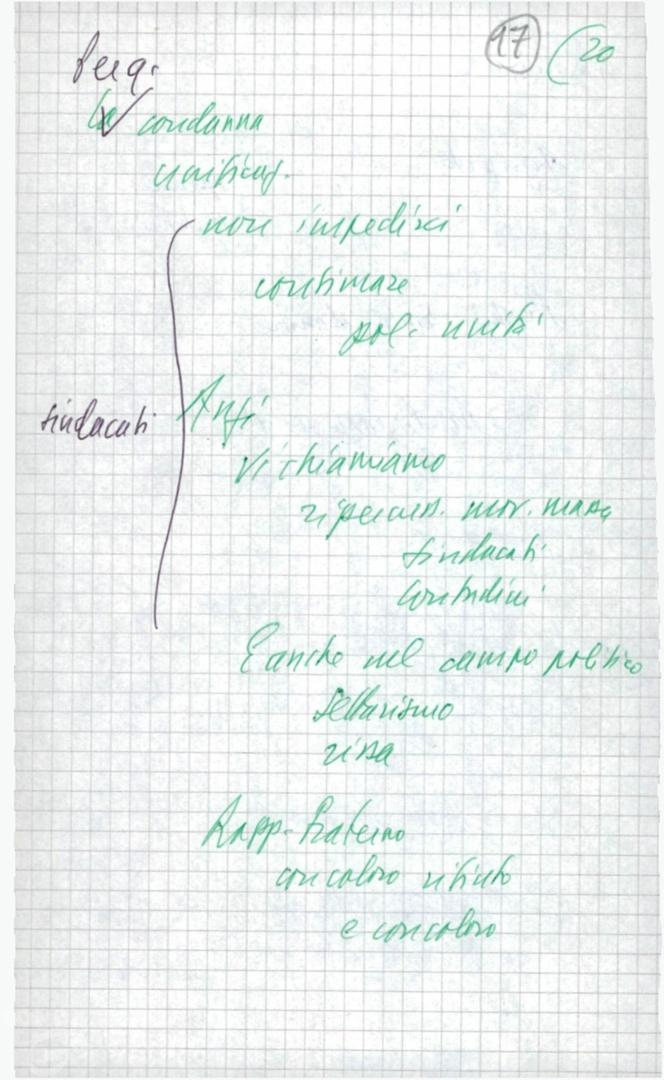 17 (20
Perq.
La condanna
unificaz.
non impedisci
continuare
pol. unità
sindacati
Anzi
Vi chiamiamo
ripercuss. mov. massa
sindacati
contadini
E anche nel campo politico
settarismo
rissa
Rapp. fraterno
con coloro rifiuto
e con coloro